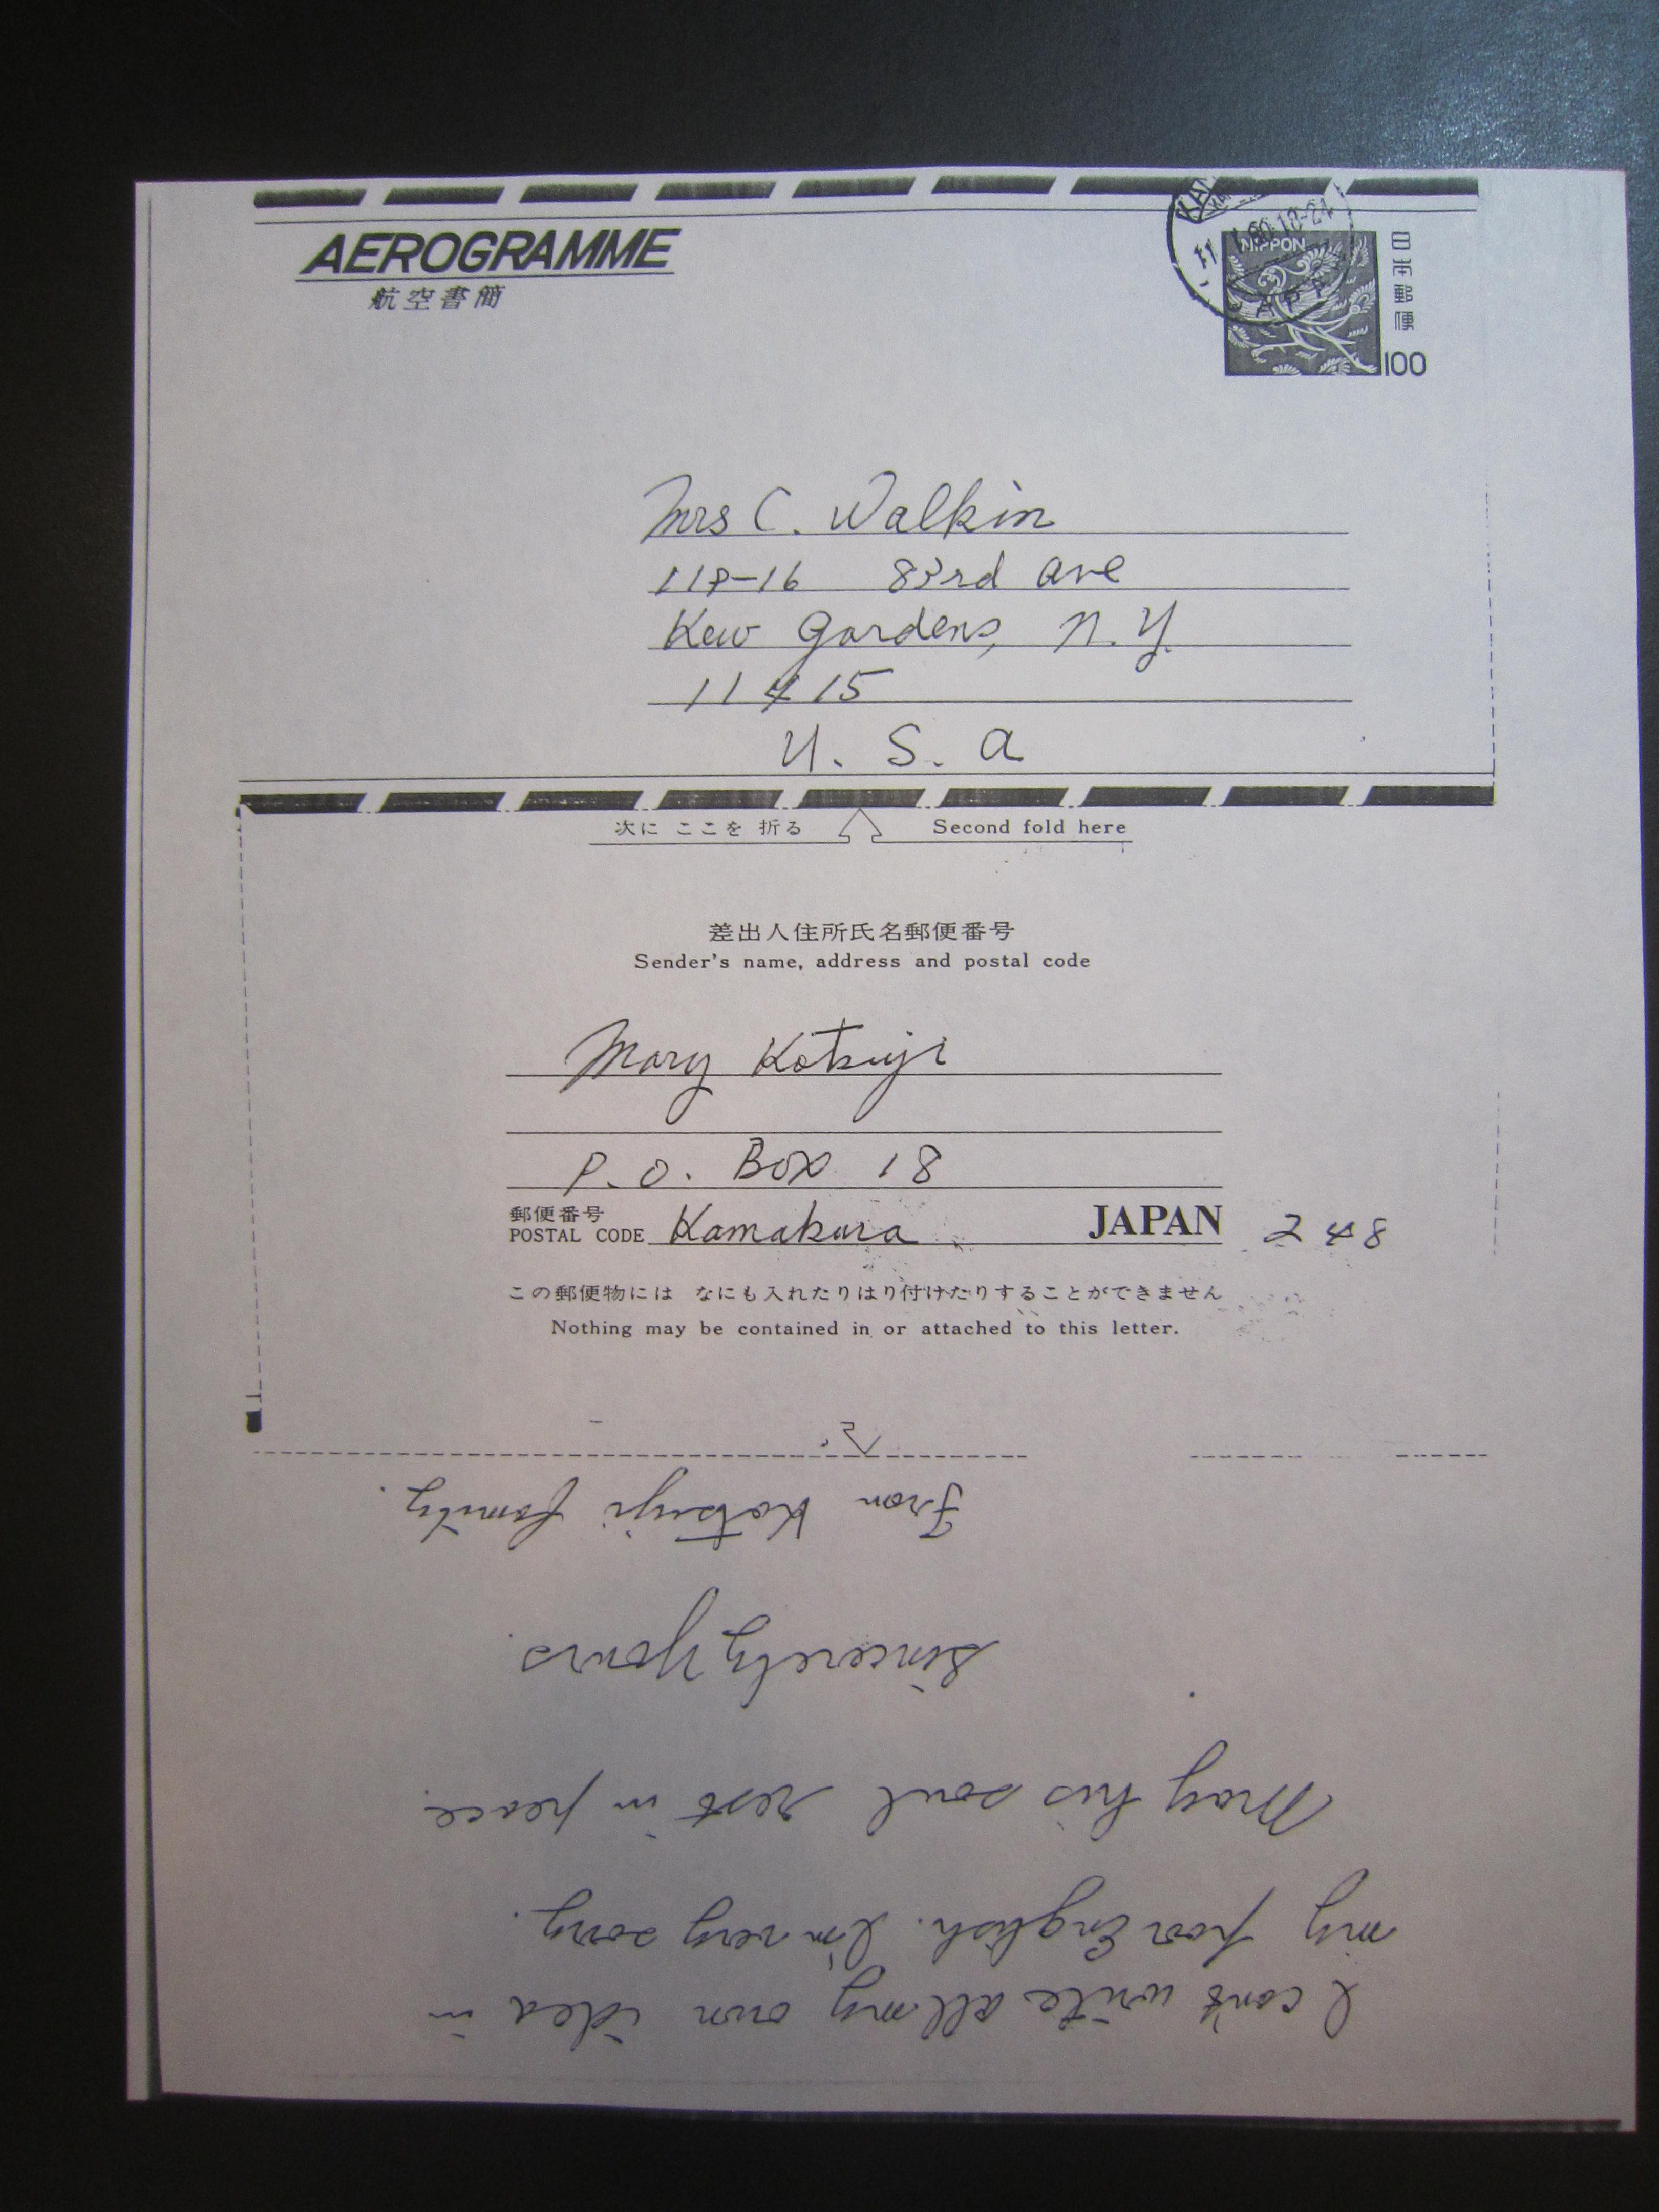 AEROGRAMME
航空書簡
NIPPON
日本郵便
100
Mrs C. Walkin
118-16 83rd ave
Kew Gardens, N.Y.
11415
U. S. A
次に ここを 折る Second fold here
差出人住所氏名郵便番号
Sender's name, address and postal code
Mary Kotsuji
P.O. Box 18
郵便番号
POSTAL CODE Kamakura JAPAN 248
この郵便物には なにも入れたりはり付けたりすることができません
Nothing may be contained in or attached to this letter.
I can't write all my own idea in
my poor English. I'm very sorry.
May his soul rest in peace.
Sincerely Yours.
From Kotsuji family.